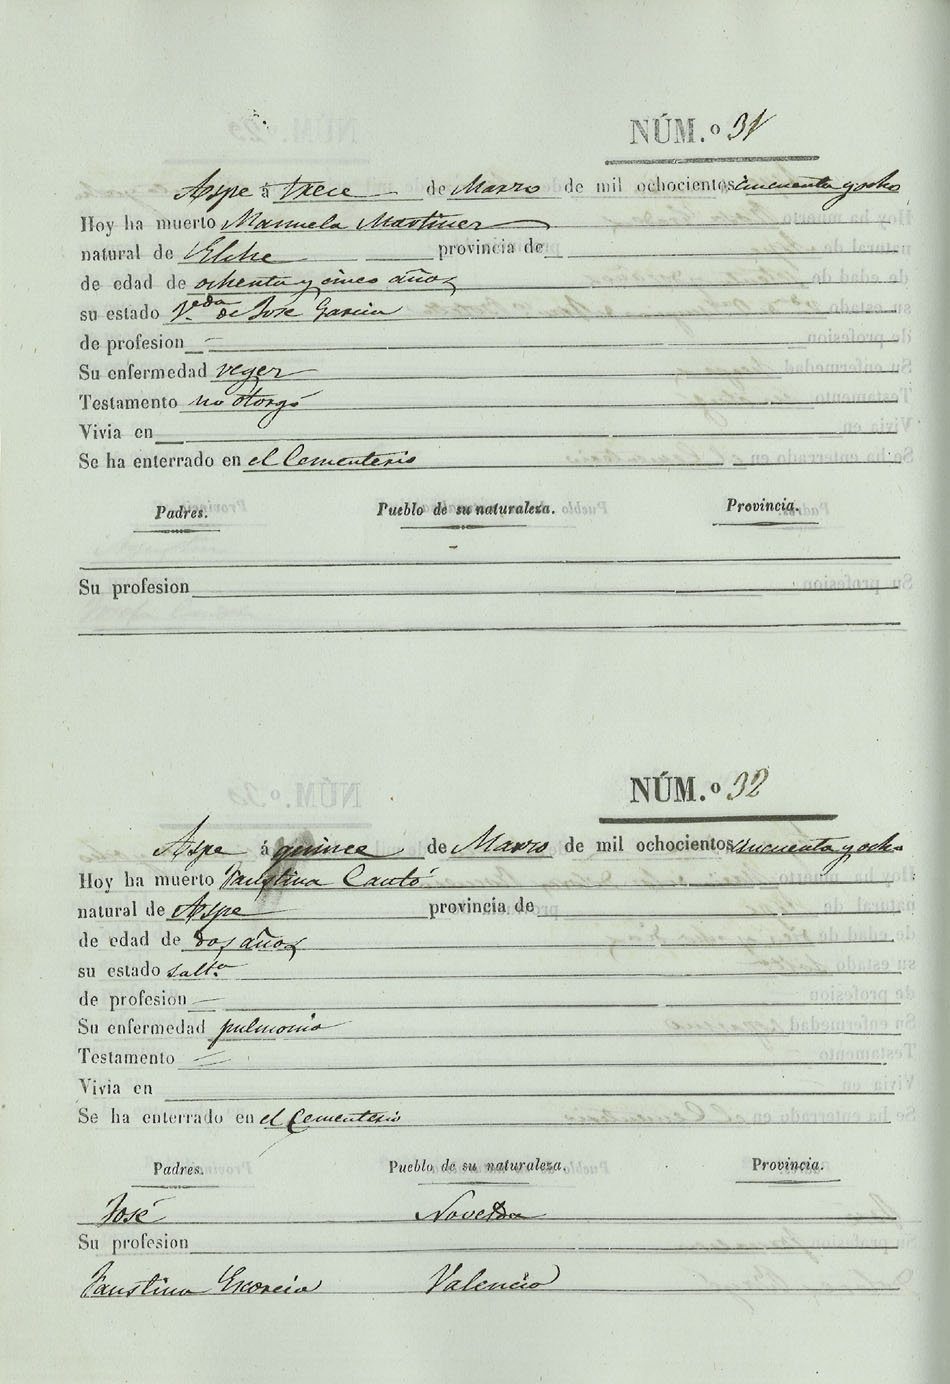 NÚM.º 31
Aspe á trece de Marzo de mil ochocientos cincuenta y ocho
Hoy ha muerto Manuela Martinez
natural de Elche provincia de
de edad de ochenta y cinco años
su estado V.eda de Jose Garcia
de profesion
Su enfermedad veger
Testamento no otorgó
Vivia en
Se ha enterrado en el Cementerio
Padres. Pueblo de su naturaleza. Provincia.
Su profesion
NÚM.º 32
Aspe á quince de Marzo de mil ochocientos cincuenta y ocho
Hoy ha muerto Faustina Cantó
natural de Aspe provincia de
de edad de dos años
su estado solt.a
de profesion
Su enfermedad pulmonia
Testamento
Vivia en
Se ha enterrado en el Cementerio
Padres. Pueblo de su naturaleza. Provincia.
José Novelda
Su profesion
Faustina Valencia